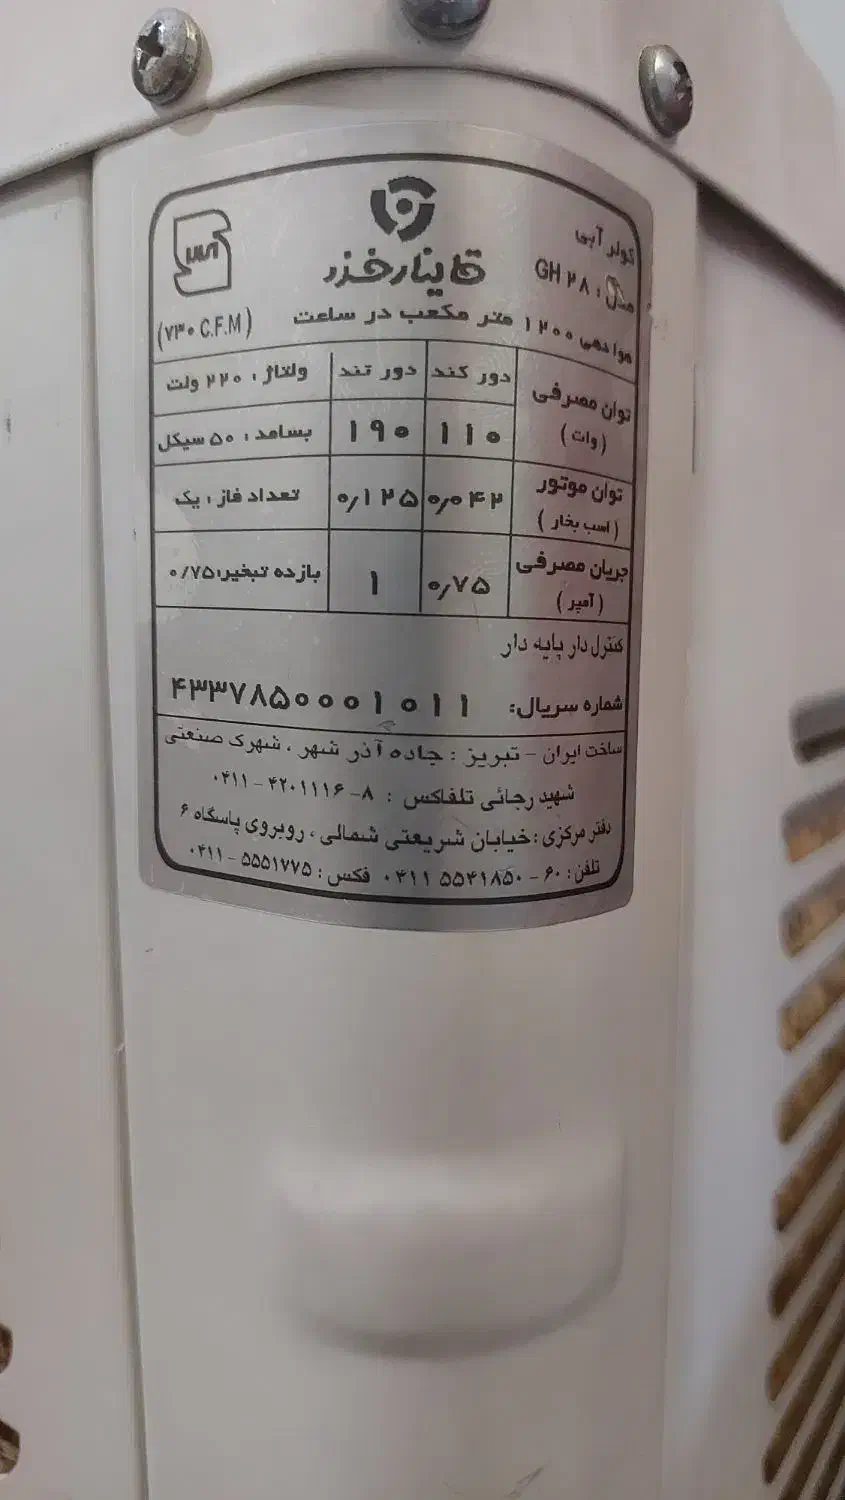 کولر آبی
مدل: GH ۲۸
قاینارخزر
هوادهی ۱۲۰۰ متر مکعب در ساعت (۷۳۰ C.F.M)
توان مصرفی (وات) دور کند دور تند ولتاژ: ۲۲۰ ولت
۱۱۰ ۱۹۰ بسامد: ۵۰ سیکل
توان موتور (اسب بخار) ۰٫۰۴۲ ۰٫۱۲۵ تعداد فاز: یک
جریان مصرفی (آمپر) ۰٫۷۵ ۱ بازده تبخیر: ۰/۷۵
کنترل دار پایه دار
شماره سریال: ۴۳۳۷۸۵۰۰۰۱۰۱۱
ساخت ایران - تبریز: جاده آذر شهر، شهرک صنعتی
شهید رجائی تلفاکس: ۸-۴۲۰۱۱۱۶-۰۴۱۱
دفتر مرکزی: خیابان شریعتی شمالی، روبروی پاسگاه ۶
تلفن: ۶۰-۵۵۴۱۸۵۰ ۰۴۱۱ فکس: ۵۵۵۱۷۷۵-۰۴۱۱